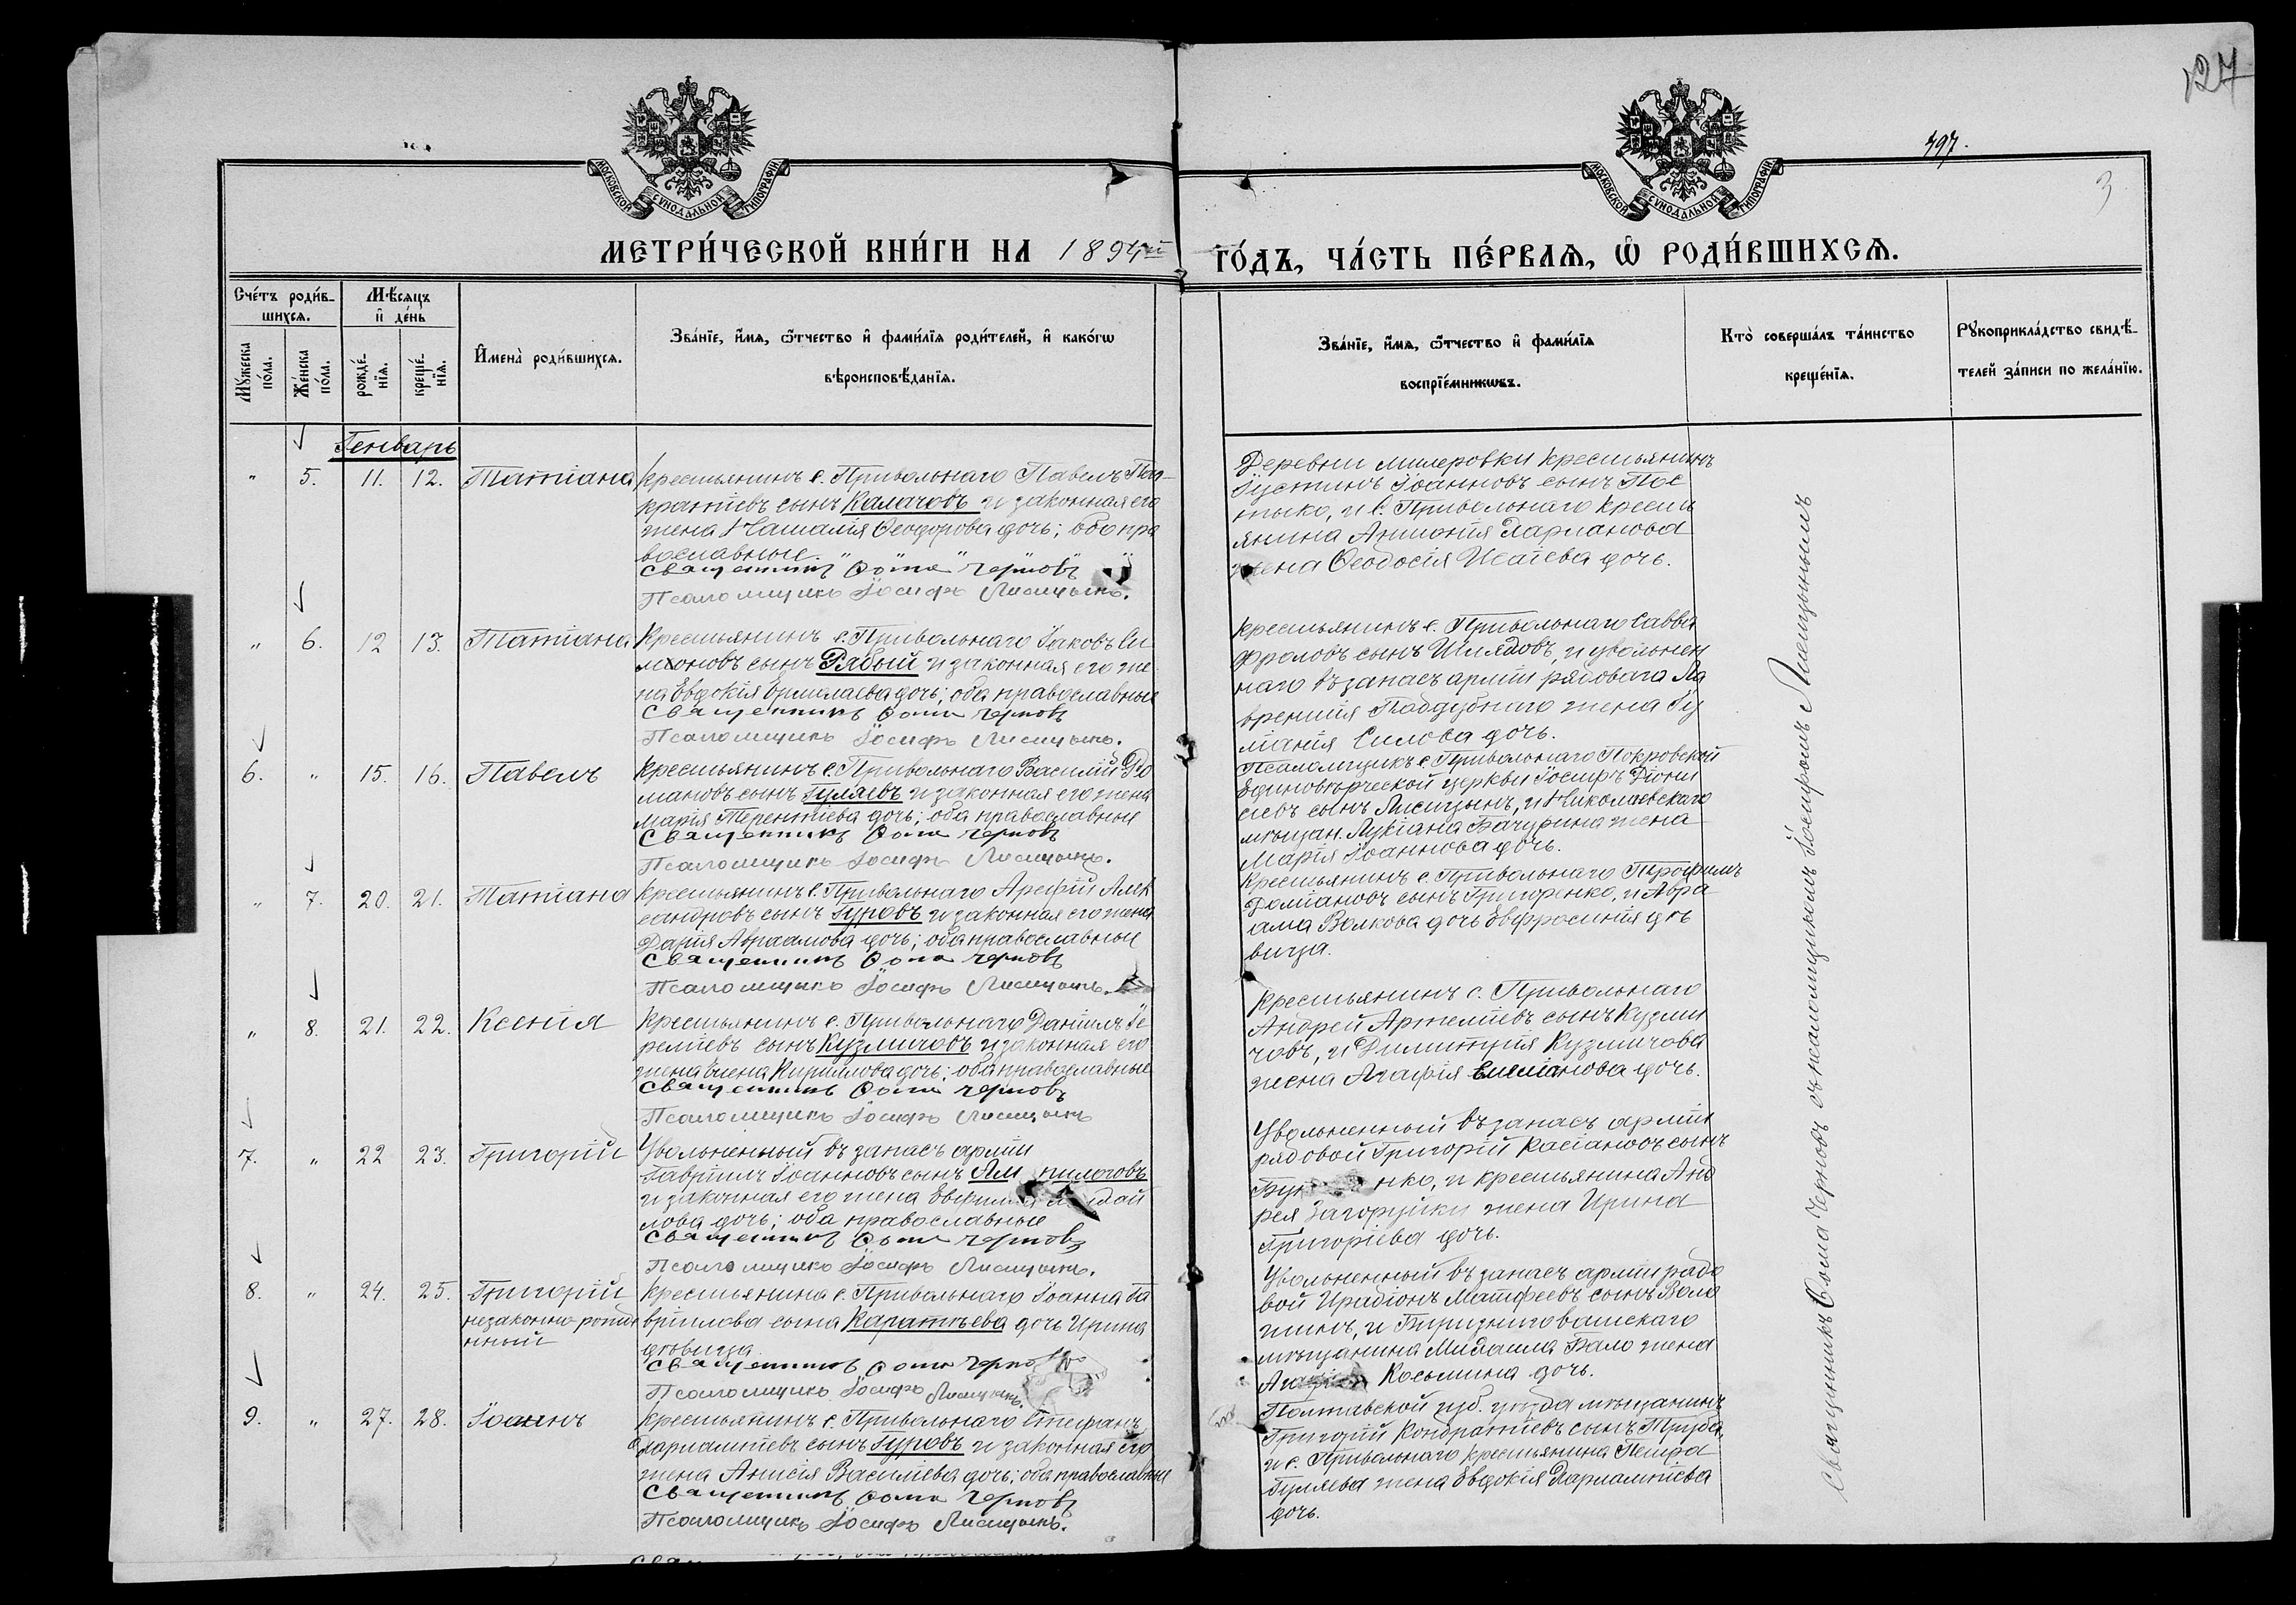 127
797.
3
МОСКОВСКОЙ СѴНОДАЛЬНОЙ ТИПОГРАФІИ
МОСКОВСКОЙ СѴНОДАЛЬНОЙ ТИПОГРАФІИ
МЕТРИ́ЧЕСКОЙ КНИ́ГИ НА 1894й ГО́ДЪ, ЧА́СТЬ ПЕ́РВАѦ, Ѡ҆ РОДИ́ВШИХСѦ.
Сче́тъ роди́в-
шихсѧ.
Мѣ́сѧцъ
и҆ де́нь
Мꙋ́жеска
по́ла.
Же́нска
по́ла.
рожде́-
нїѧ.
креще́-
нїѧ.
И҆мена̀ роди́вшихсѧ.
Зва́нїе, и҆́мѧ, ѻ҆́тчество и҆ фами́лїѧ роди́телей, и҆ како́гѡ
вѣроисповѣ́данїѧ.
Зва́нїе, и҆́мѧ, ѻ҆́тчество и҆ фами́лїѧ
воспрїе́мникѡвъ.
Кто̀ соверша́лъ та́инство
креще́нїѧ.
Рꙋкоприкла́дство свидѣ́-
телей за́писи по жела́нїю.
Генварь
" 5. 11. 12. Татіана
Крестьянинъ с. Привольнаго Павелъ Пан-
кратіевъ сынъ Калачовъ и законная его
жена Наталія Ѳеодорова дочь; оба пра
вославные.
Священникъ Ѳома Черновъ
Псаломщикъ Іосифъ Лисицынъ.
Деревни Милеровки крестьянинъ
Іустинъ Іоанновъ сынъ Пос
тыко, и с. Привольнаго кресть
янина Антонія Харланова
жена Ѳеодосія Исаіева дочь.
" 6. 12 13. Татіана
Крестьянинъ с. Привольнаго Іаковъ Си
моновъ сынъ Рябый и законная его же
на Евдокія Ермолаева дочь; оба православные
Священникъ Ѳома Черновъ
Псаломщикъ Іосифъ Лисицынъ.
Крестьянинъ с. Привольнаго Савва
Фроловъ сынъ Шлядовъ, и уволнен
наго въ запасъ арміи рядоваго Ла
врентія Поддубнаго жена Іу
ліанія Силова дочь.
6. " 15. 16. Павелъ
Крестьянинъ с. Привольнаго Василій Ро
мановъ сынъ Гуляевъ и законная его жена
Марія Терентіева дочь; оба православные
Священникъ Ѳома Черновъ
Псаломщикъ Іосифъ Лисицынъ.
Псаломщикъ с. Привольнаго Покровской
Единовѣрческой церкви Іосифъ Діони
сіевъ сынъ Лисицынъ, и Николаевскаго
мѣщан. Лукіана Бачурина жена
Марія Іоаннова дочь.
" 7. 20. 21. Татіана
Крестьянинъ с. Привольнаго Арефій Алек
сандровъ сынъ Гуровъ и законная его жена
Дарія Авраамова дочь; оба православные
Священникъ Ѳома Черновъ
Псаломщикъ Іосифъ Лисицынъ.
Крестьянинъ с. Привольнаго Трофимъ
Даміановъ сынъ Григоренко, и Авра
ама Волкова дочь Евфросинія дѣ
вица.
" 8. 21. 22. Ксенія
Крестьянинъ с. Привольнаго Даніилъ Іе
реміевъ сынъ Кузмичовъ и законная его
жена Елена Кириллова дочь; оба православные
Священникъ Ѳома Черновъ
Псаломщикъ Іосифъ Лисицынъ
Крестьянинъ с. Привольнаго
Андрей Артеміевъ сынъ Кузми
човъ, и Димитрія Кузмичова
жена Агафія Емиліанова дочь.
7. " 22 23. Григорій
Уволненный въ запасъ арміи
Гавріилъ Іоанновъ сынъ
и законная его жена
лова дочь; оба православные
Священникъ Ѳома Черновъ
Псаломщикъ Іосифъ Лисицынъ.
Уволненный въ запасъ арміи
рядовой Григорій Касіановъ сынъ
нко, и крестьянина Анд
рея Загоруйки жена Ирина
Григоріева дочь.
8. " 24. 25. Григорій
незаконно рожде
нный
Крестьянина с. Привольнаго Іоанна Га
вріилова сына Каратѣева дочь Ирина
дѣвица
Священникъ Ѳома Черновъ
Псаломщикъ Іосифъ Лисицынъ.
Уволненный въ запасъ арміи рядо
вой Иродіонъ Матфеевъ сынъ Воло
жинъ, и
мѣщанина Михаила Бало жена
Косьмина дочь.
9. " 27. 28. Іоаннъ
Крестьянинъ с. Привольнаго Стефанъ
Харлампіевъ сынъ Гуровъ и законная его
жена Анисія Василіева дочь; оба православные
Священникъ Ѳома Черновъ
Псаломщикъ Іосифъ Лисицынъ.
Полтавской губ. уѣзда мѣщанинъ
Григорій Кондратіевъ сынъ Труба,
и с. Привольнаго крестьянина
Гуляева жена Евдокія Харлампіева
дочь.
Священникъ Ѳома Черновъ съ псаломщикомъ Іосифомъ Лисицынымъ